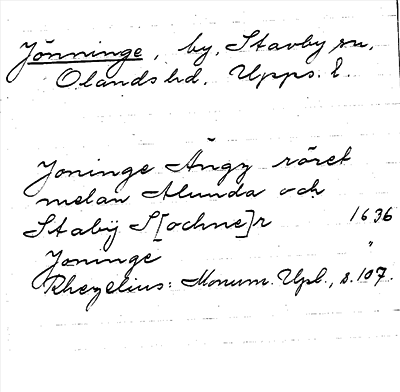 Jönninge, by, Stavby sn,
Olands hd. Upps. l.
Joninge Ängz röret
melan Alunda och
Stabÿ S[ochne]r 1636
Joninge "
Rhezelius: Monum. Upl., s. 107.